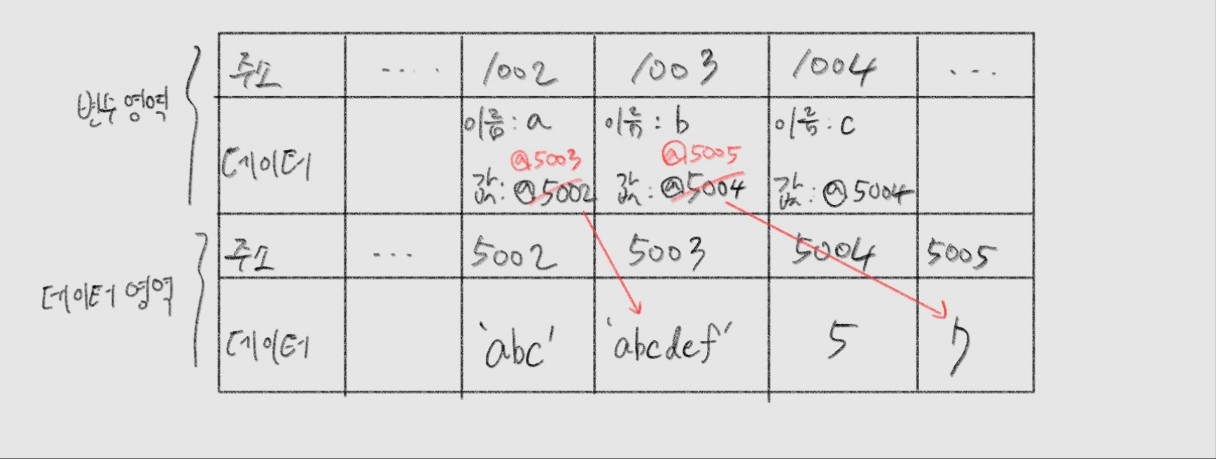 변수 영역
주소 ..... 1002 1003 1004 ...
데이터
이름: a 이름: b 이름: c
@5003 @5005
값: @5002 값: @5004 값: @5004
데이터 영역
주소 ... 5002 5003 5004 5005
데이터 'abc' 'abcdef' 5 7